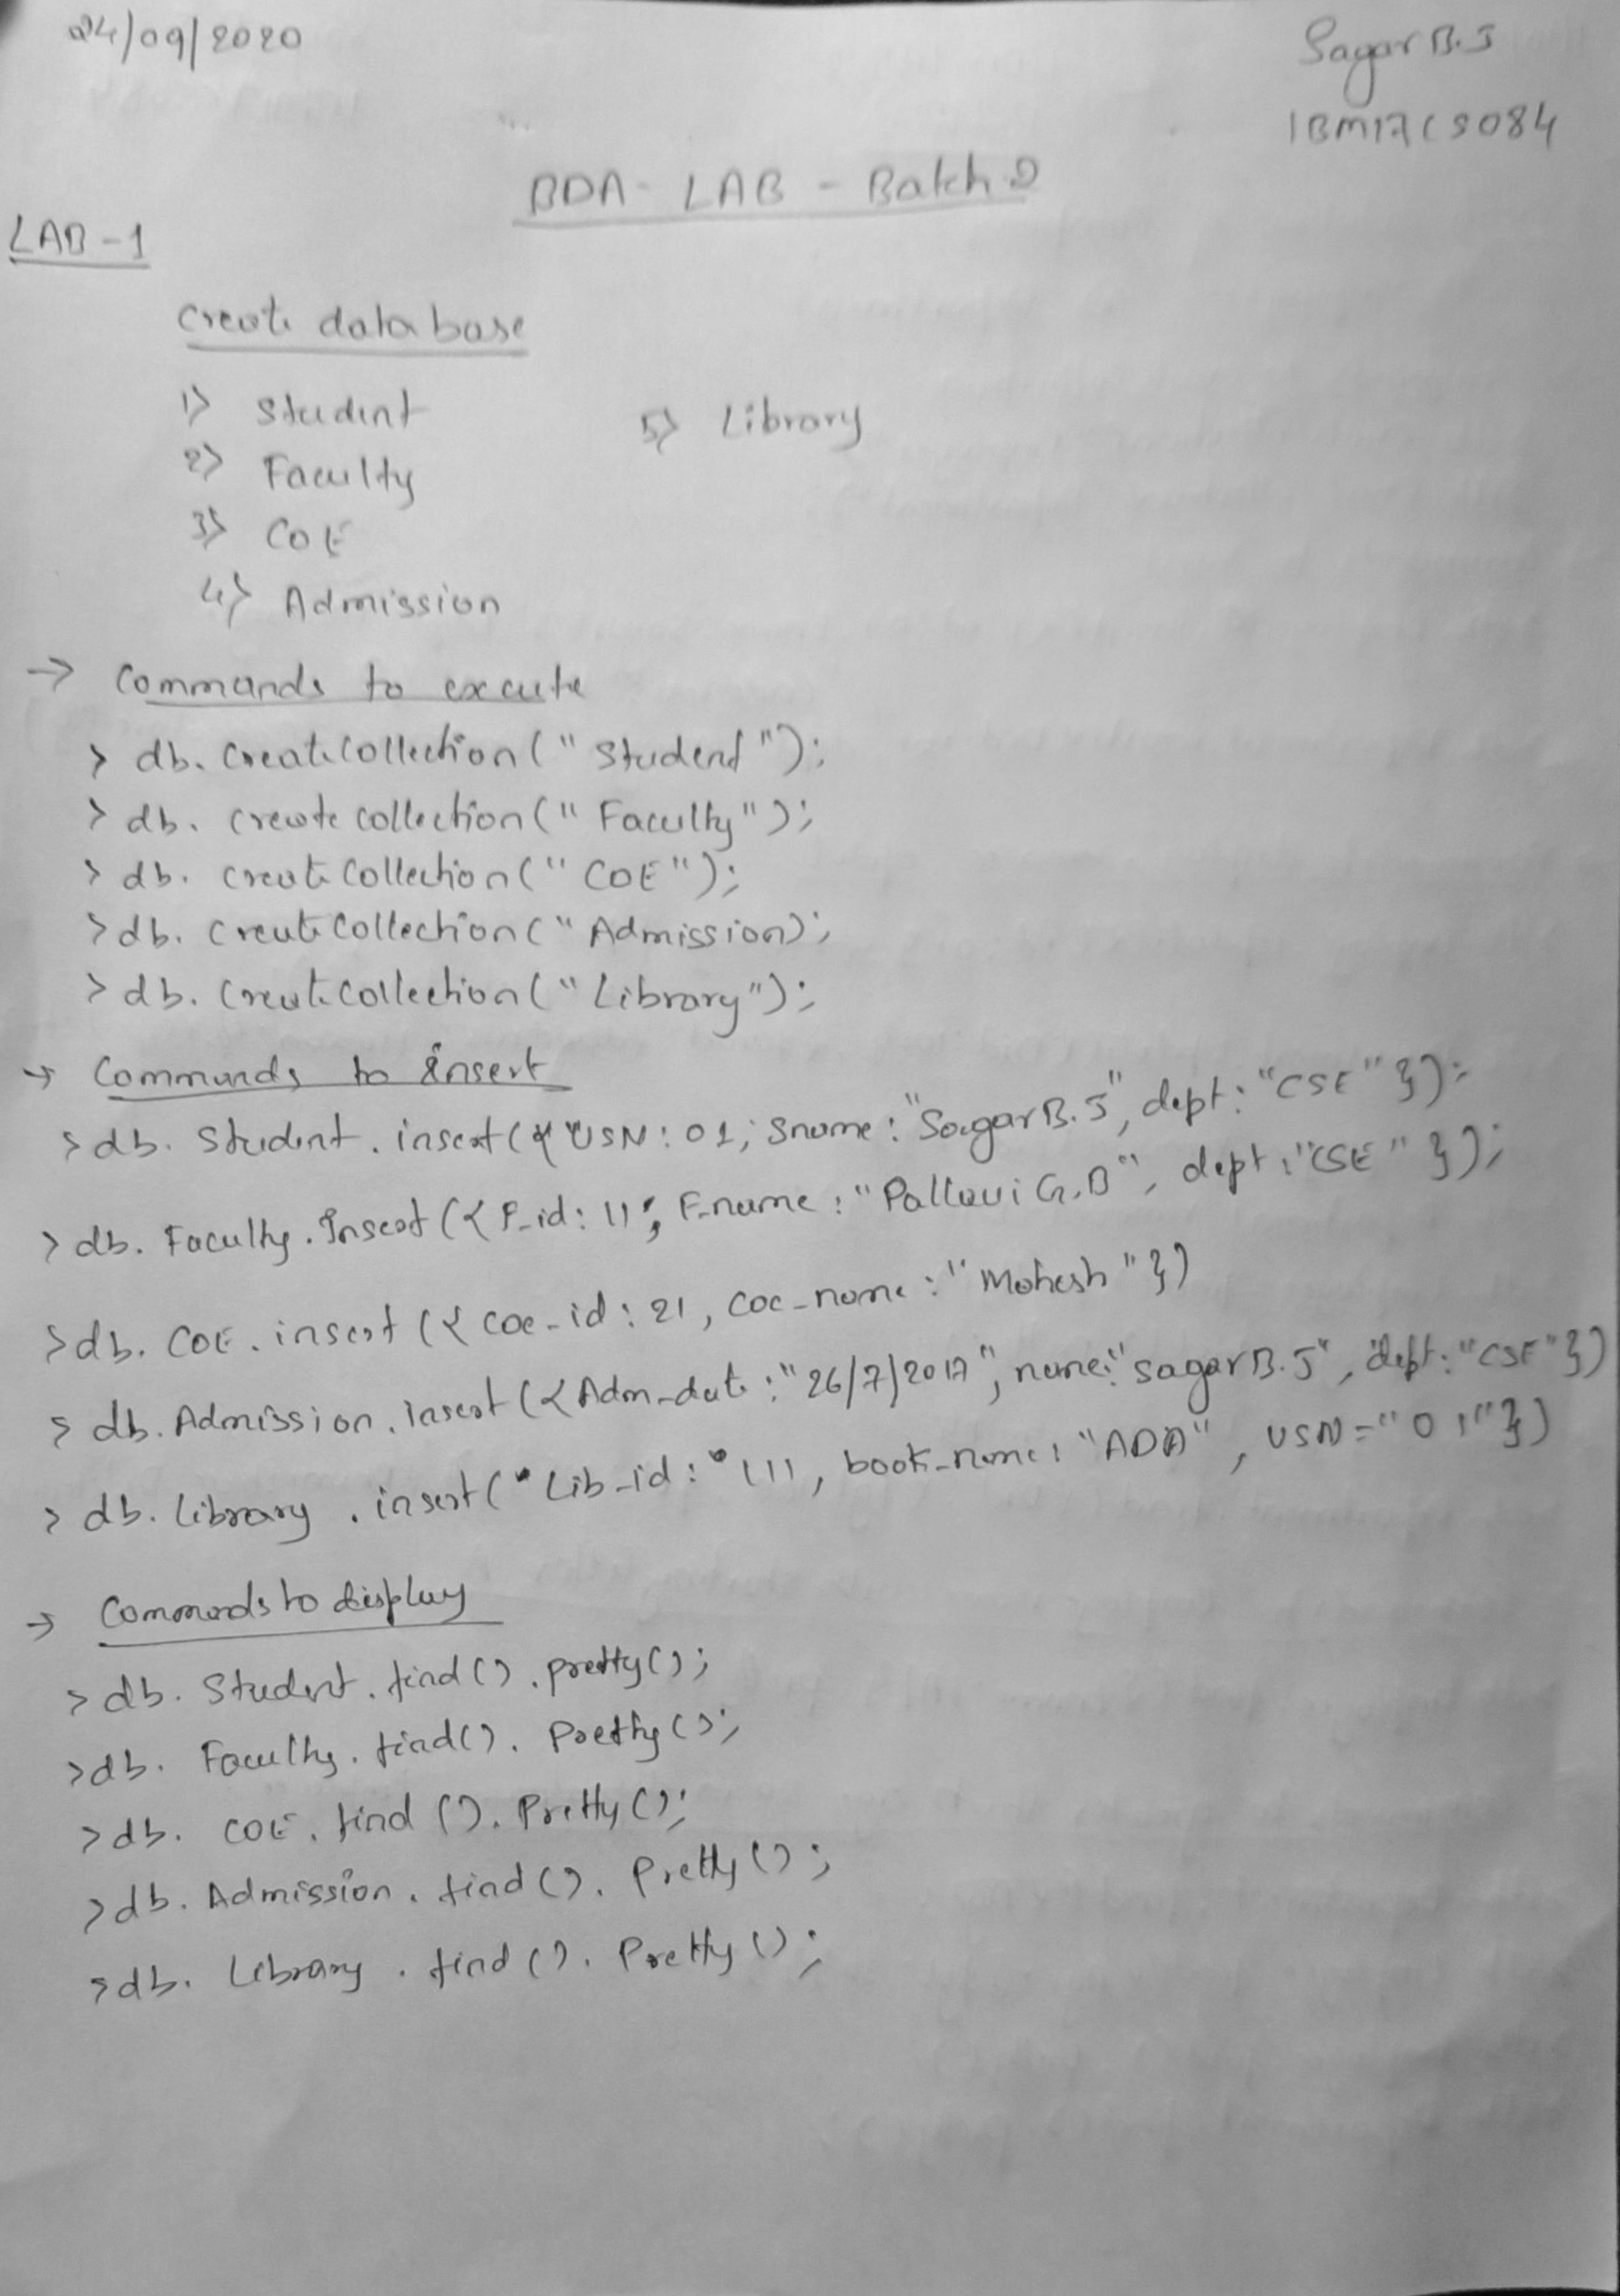 24/09/2020
Sagar B.J
1BM17CS084
BDA - LAB - Batch 2
LAB - 1
Create database
1) Student
5) Library
2) Faculty
3) COE
4) Admission
→ Commands to excute
> db. CreateCollection (" Student ");
> db. create collection (" Faculty");
> db. create Collection (" COE ");
> db. create Collection (" Admission);
> db. Create Collection (" Library");
→ Commands to Insert
> db. Student . insert ({ USN : 01; Sname : "Sagar B.J", dept : "CSE" });
> db. Faculty . Insert ({ F_id : 11, F_name : "Pallavi G.B", dept : "CSE" });
> db. COE . insert ({ coe_id : 21, coe_name : "Mahesh "})
> db. Admission . insert ({ Adm_date : "26/7/2017", name : "Sagar B.J", dept : "CSE"})
> db. Library . insert ( Lib_id : 111, book_name : "ADA", USN = "01"})
→ Commands to display
> db. Student . find () . pretty ();
> db. Faculty . find() . Pretty ();
> db. COE . find () . Pretty ();
> db. Admission . find () . Pretty ();
> db. Library . find () . Pretty ();